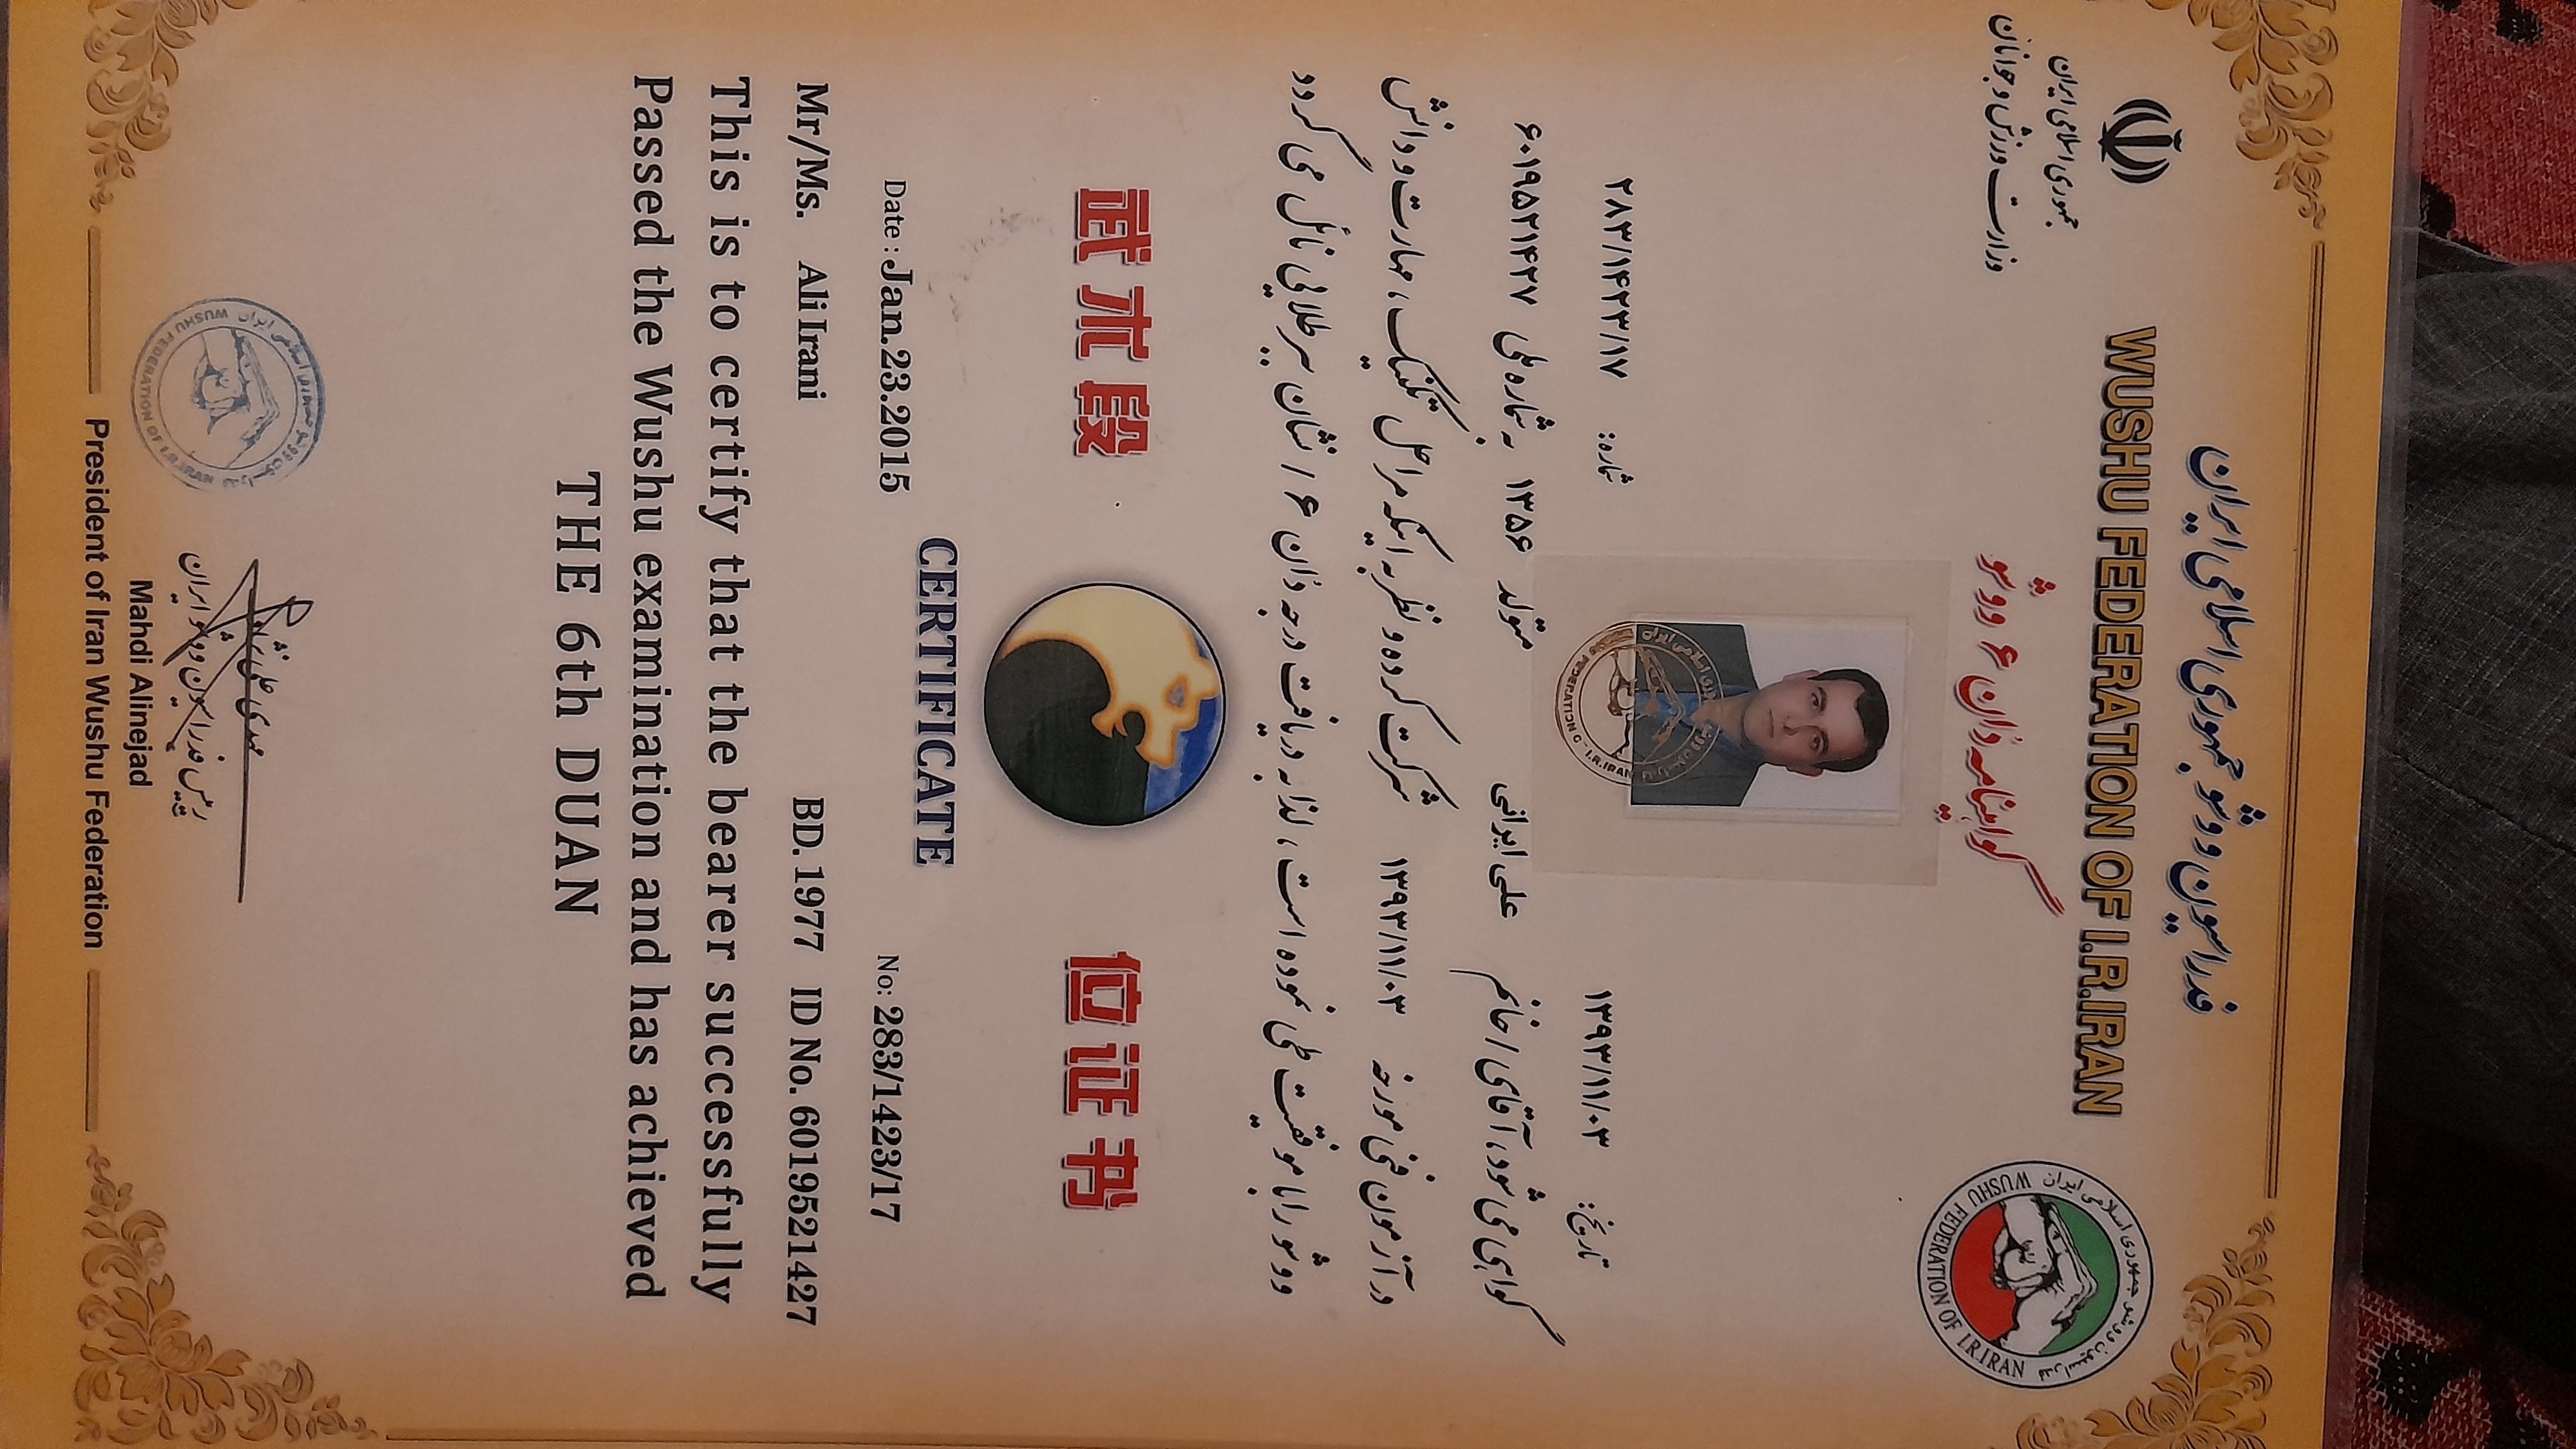 فدراسیون ووشو جمهوری اسلامی ایران
WUSHU FEDERATION OF I.R.IRAN
جمهوری اسلامی ایران
وزارت ورزش و جوانان
فدراسیون ووشو جمهوری اسلامی ایران
WUSHU FEDERATION OF I.R.IRAN
گواهینامه دان ۶ ووشو
تاریخ: ۱۳۹۳/۱۱/۰۳
شماره: ۲۸۳/۱۴۲۳/۱۷
گواهی می شود، آقای / خانم علی ایرانی متولد ۱۳۵۶ به شماره ملی ۶۰۱۹۵۲۱۴۲۷
در آزمون فنی مورخه ۱۳۹۳/۱۱/۰۳ شرکت کرده و نظر به اینکه مراحل تکنیک، مهارت و دانش
ووشو را با موفقیت طی نموده است، لذا به دریافت درجه دان ۶ / نشان ببر طلایی نائل می گردد
武术段 位证书
CERTIFICATE
Date : Jan.23.2015 No: 283/1423/17
Mr/Ms. Ali Irani BD. 1977 ID No. 6019521427
This is to certify that the bearer successfully
Passed the Wushu examination and has achieved
THE 6th DUAN
مهدی علی نژاد
رییس فدراسیون ووشو ایران
WUSHU FEDERATION OF I.R.IRAN
Mahdi Alinejad
President of Iran Wushu Federation